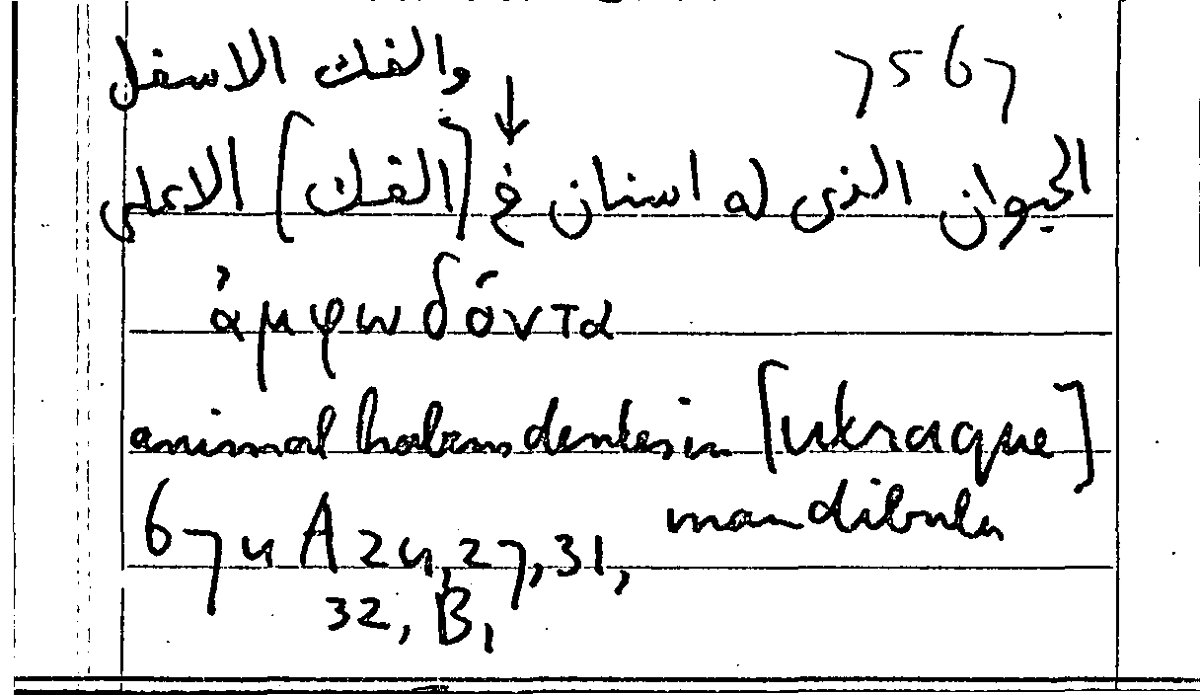 والفك الاسفل 7567
الحيوان الذى له اسنان فى ↓ [الفك] الاعلى
ἀμφωδόντα
animal habens dentes in [utraque]
mandibula
674 A 24, 27, 31,
32, B,